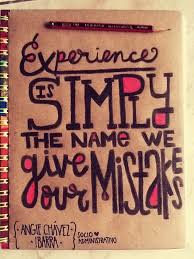 Experience
IS
SIMPLY
THE NAME WE
give
our MISTAKES
{ANGIE CHÁVEZ
IBARRA}
SOCIO
ADMINISTRATIVO